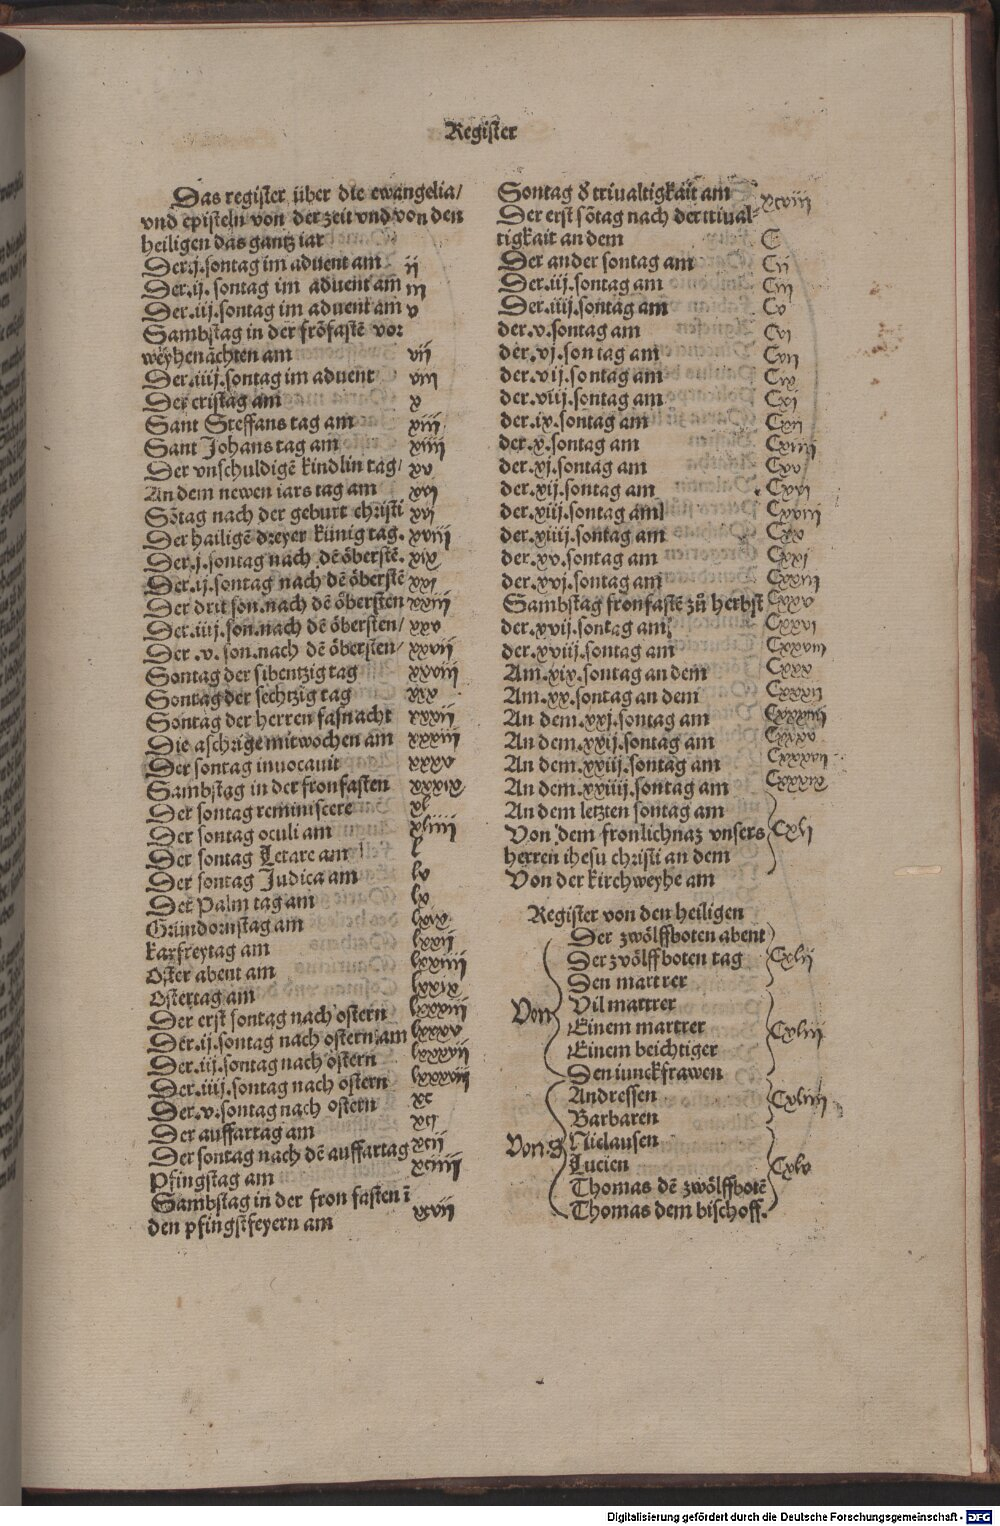 Register
Das register über die ewangelia/
vnd episteln von der zeit vnd von den
heiligen das gantz iar
Der.j.sontag im aduent am ij
Der.ij.sontag im aduent am iij
Der.iij.sontag im aduent am v
Sambstag in der frōfastē vor
weyhenächten am vij
Der.iiij.sontag im aduent viij
Der cristag am x
Sant Steffans tag am xiij
Sant Johans tag am xiiij
Der vnschuldigē kindlin tag/ xv
An dem newen iars tag am xvj
Sōtag nach der geburt christi xvj
Der hailigē dreyer künig tag. xviij
Der.j.sontag nach dē öberstē. xix
Der.ij.sontag nach dē öberstē xxj
Der drit son.nach dē öbersten xxiij
Der.iiij.son.nach dē öbersten/ xxv
Der.v.son.nach dē öbersten/ xxvij
Sontag der sibentzig tag xxviij
Sontag der sechtzig tag xxx
Sontag der herren fasnacht xxxij
Die aschrige mitwochen am xxxiij
Der sontag inuocauit xxxv
Sambstag in der fronfasten xxxix
Der sontag reminiscere xl
Der sontag oculi am xliiij
Der sontag Letare am l
Der sontag Judica am lv
Der Palm tag am lx
Gründornstag am lxix
karfreytag am lxxij
Oster abent am lxxiiij
Ostertag am lxxix
Der erst sontag nach ostern lxxxiij
Der.ij.sontag nach ostern am lxxxv
Der.iij.sontag nach ostern lxxxvij
Der.iiij.sontag nach ostern lxxxvij
Der.v.sontag nach ostern xc
Der auffartag am xcj
Der sontag nach dē auffartag xcij
Pfingstag am xciiij
Sambstag in der fron fasten ī
den pfingstfeyern am xcvij
Sontag d triualtigkäit am xcviij
Der erst sōtag nach der triual-
tigkait an dem C
Der ander sontag am Cij
Der.iij.sontag am Ciij
Der.iiij.sontag am Cv
der.v.sontag am Cvj
der.vj.son tag am Cvij
der.vij.sontag am Cix
der.viij.sontag am Cxj
der.ix.sontag am Cxij
der.x.sontag am Cxiiij
der.xj.sontag am Cxv
der.xij.sontag am Cxvj
der.xiij.sontag am Cxviij
der.xiiij.sontag am Cxx
der.xv.sontag am Cxxj
der.xvj.sontag am Cxxiij
Sambstag fronfastē zů herbst Cxxv
der.xvij.sontag am Cxxvj
der.xviij.sontag am Cxxviij
Am.xix.sontag an dem Cxxx
Am.xx.sontag an dem Cxxxij
An dem.xxj.sontag am Cxxxiiij
An dem.xxij.sontag am Cxxxv
An dem.xxiij.sontag am Cxxxvij
An dem.xxiiij.sontag am Cxxxix
An dem letzten sontag am
Von dem fronlichnaz vnsers Cxlj
herren ihesu christi an dem
Von der kirchweyhe am
Register von den heiligen
Der zwölffboten abent
Der zvölffboten tag Cxlij
Den martrer
Von Vil mattrer
Einem martrer Cxliij
Einem beichtiger
Den iunckfrawen
Andressen Cxliiij
Barbaren
Von.S. Niclausen
Lucien Cxlv
Thomas dē zwölffbotē
Thomas dem bischoff.
Digitalisierung gefördert durch die Deutsche Forschungsgemeinschaft - DFG